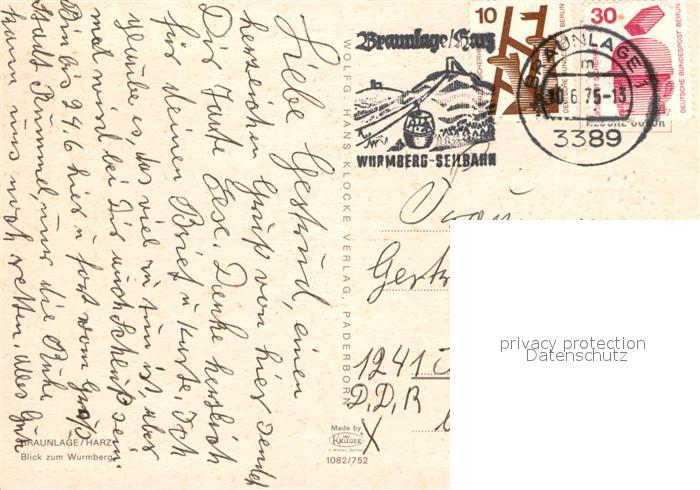 Liebe Gertrud, einen
herzlichen Gruß von hier sendet
Dir Tante Ese. Danke herzlich
für deinen Brief u Karte. Ich
glaube es, das viel zu tun ist, aber
mal wird bei Dir auch Schluß sein.
Bin bis 24.6 hier u fort vom Groß
Stadt Rummel, nur die Ruhe
kann uns noch retten. Alles Gute
BRAUNLAGE/HARZ
Blick zum Wurmberg
WOLFG. HANS KLOCKE VERLAG, PADERBORN
Made by
KRÜGER
1082/752
Braunlage/Harz
WURMBERG-SEILBAHN
10
DEUTSCHE BUNDESPOST BERLIN
30
DEUTSCHE BUNDESPOST BERLIN
BRAUNLAGE 1
m
6.75-13
3389
Frau
1241
D.D.R
X
privacy protection
Datenschutz